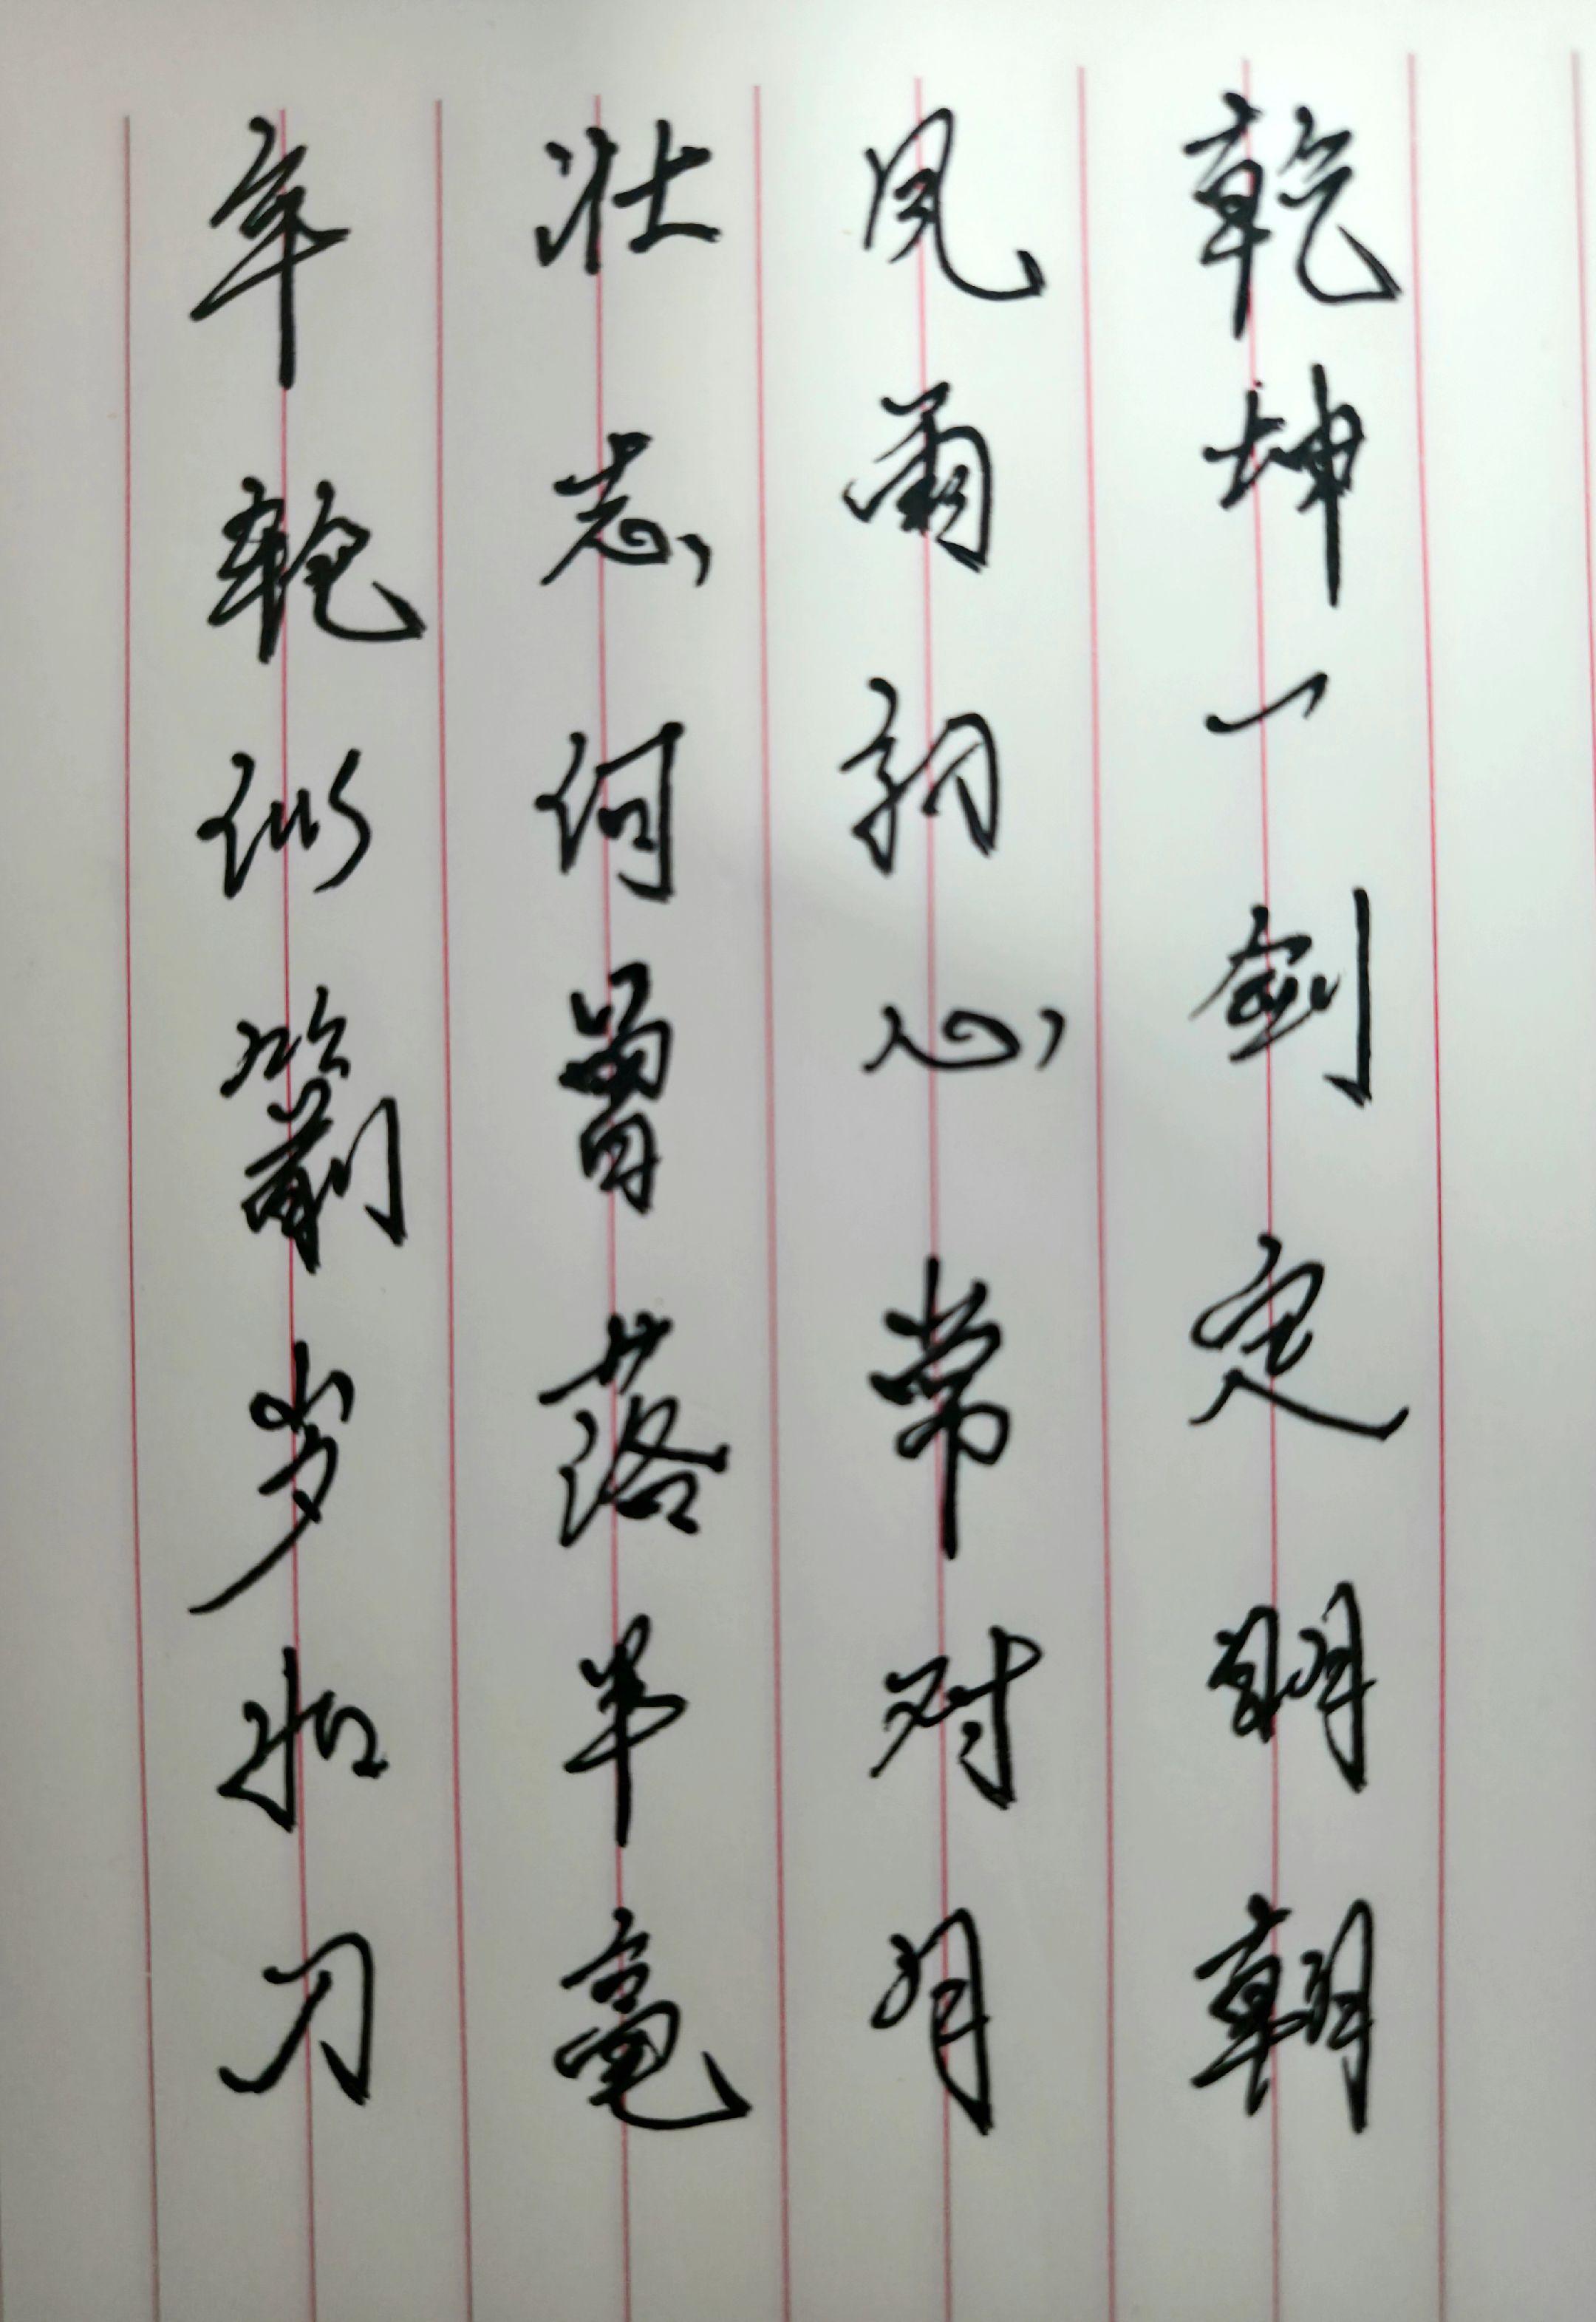 乾坤一剑定明朝
风雨初心常对月
壮志何曾落半毫
年似箭岁如刀